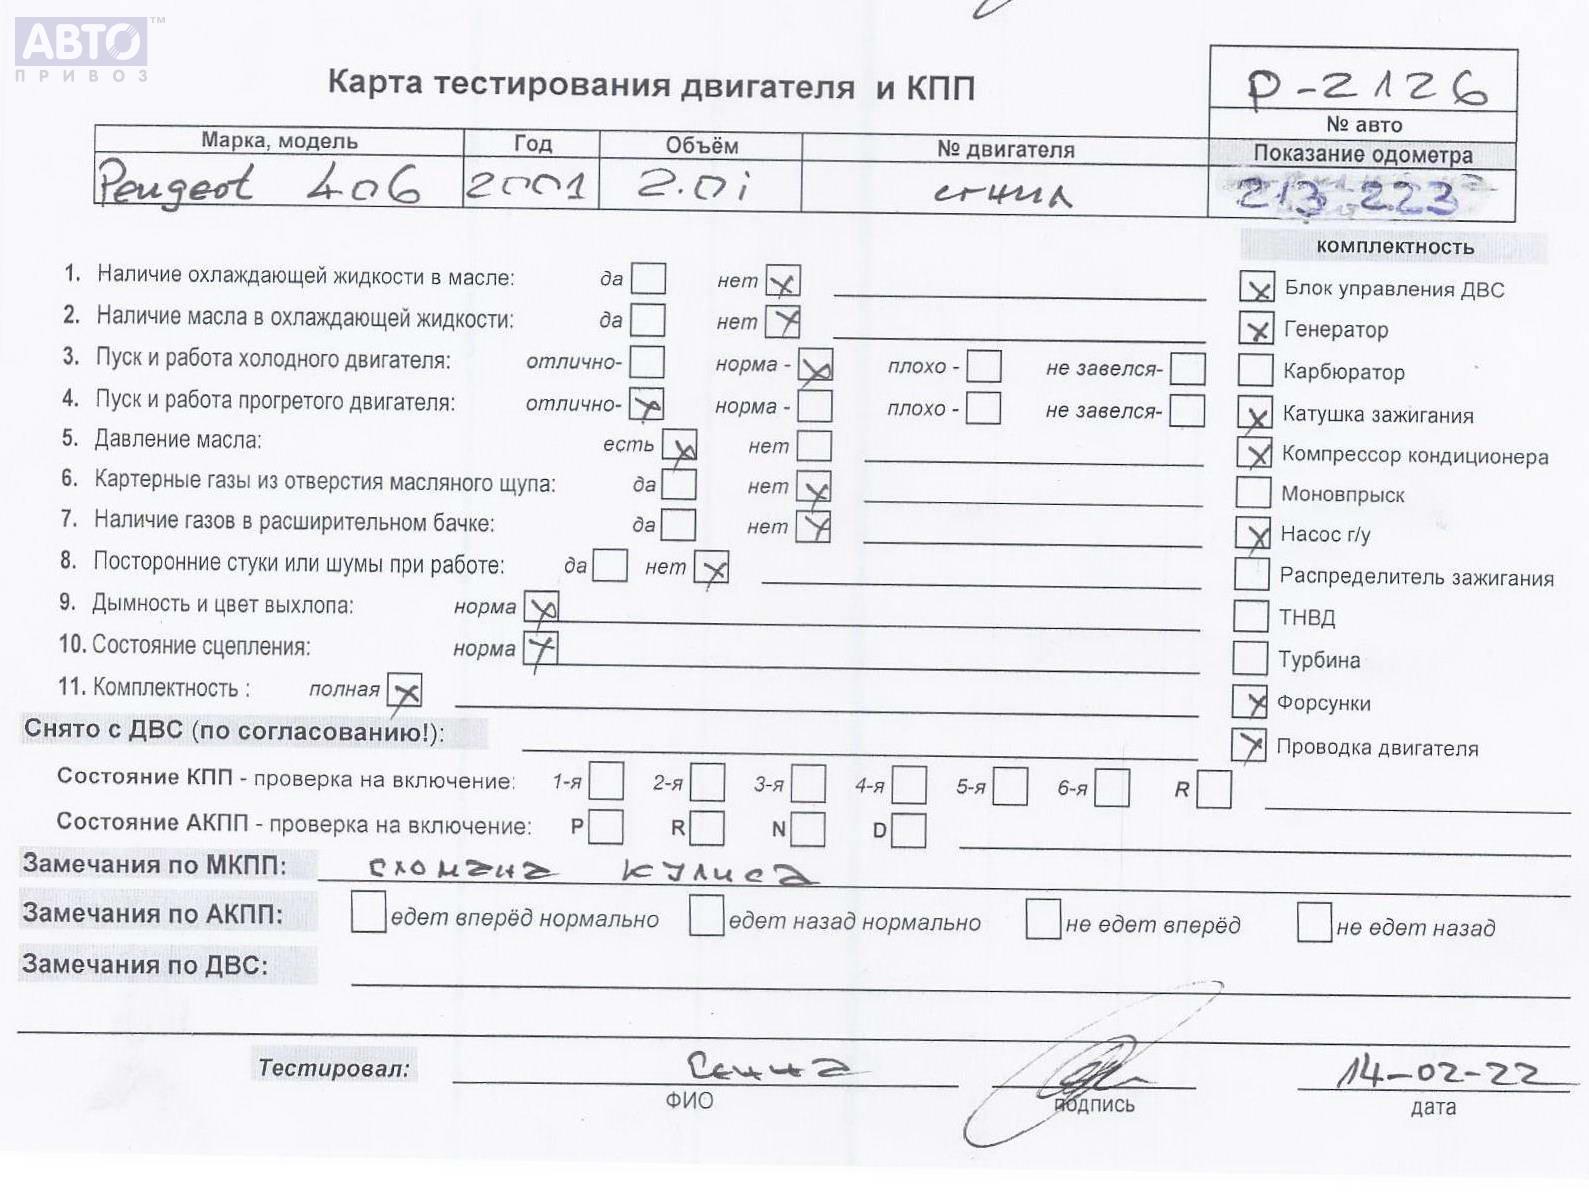 АВТО ™
ПРИВОЗ
Карта тестирования двигателя и КПП
P-2126
№ авто
Марка, модель Год Объём № двигателя Показание одометра
Peugeot 406 2001 2.0i сгнил 213 223
комплектность
1. Наличие охлаждающей жидкости в масле: да нет
Блок управления ДВС
2. Наличие масла в охлаждающей жидкости: да нет
Генератор
3. Пуск и работа холодного двигателя: отлично- норма - плохо - не завелся-
Карбюратор
4. Пуск и работа прогретого двигателя: отлично- норма - плохо - не завелся-
Катушка зажигания
5. Давление масла: есть нет
Компрессор кондиционера
6. Картерные газы из отверстия масляного щупа: да нет
Моновпрыск
7. Наличие газов в расширительном бачке: да нет
Насос г/у
8. Посторонние стуки или шумы при работе: да нет
Распределитель зажигания
9. Дымность и цвет выхлопа: норма
ТНВД
10. Состояние сцепления: норма
Турбина
11. Комплектность : полная
Форсунки
Снято с ДВС (по согласованию!):
Проводка двигателя
Состояние КПП - проверка на включение: 1-я 2-я 3-я 4-я 5-я 6-я R
Состояние АКПП - проверка на включение: P R N D
Замечания по МКПП: сломана кулиса
Замечания по АКПП: едет вперёд нормально едет назад нормально не едет вперёд не едет назад
Замечания по ДВС:
Тестировал: 14-02-22
ФИО подпись дата